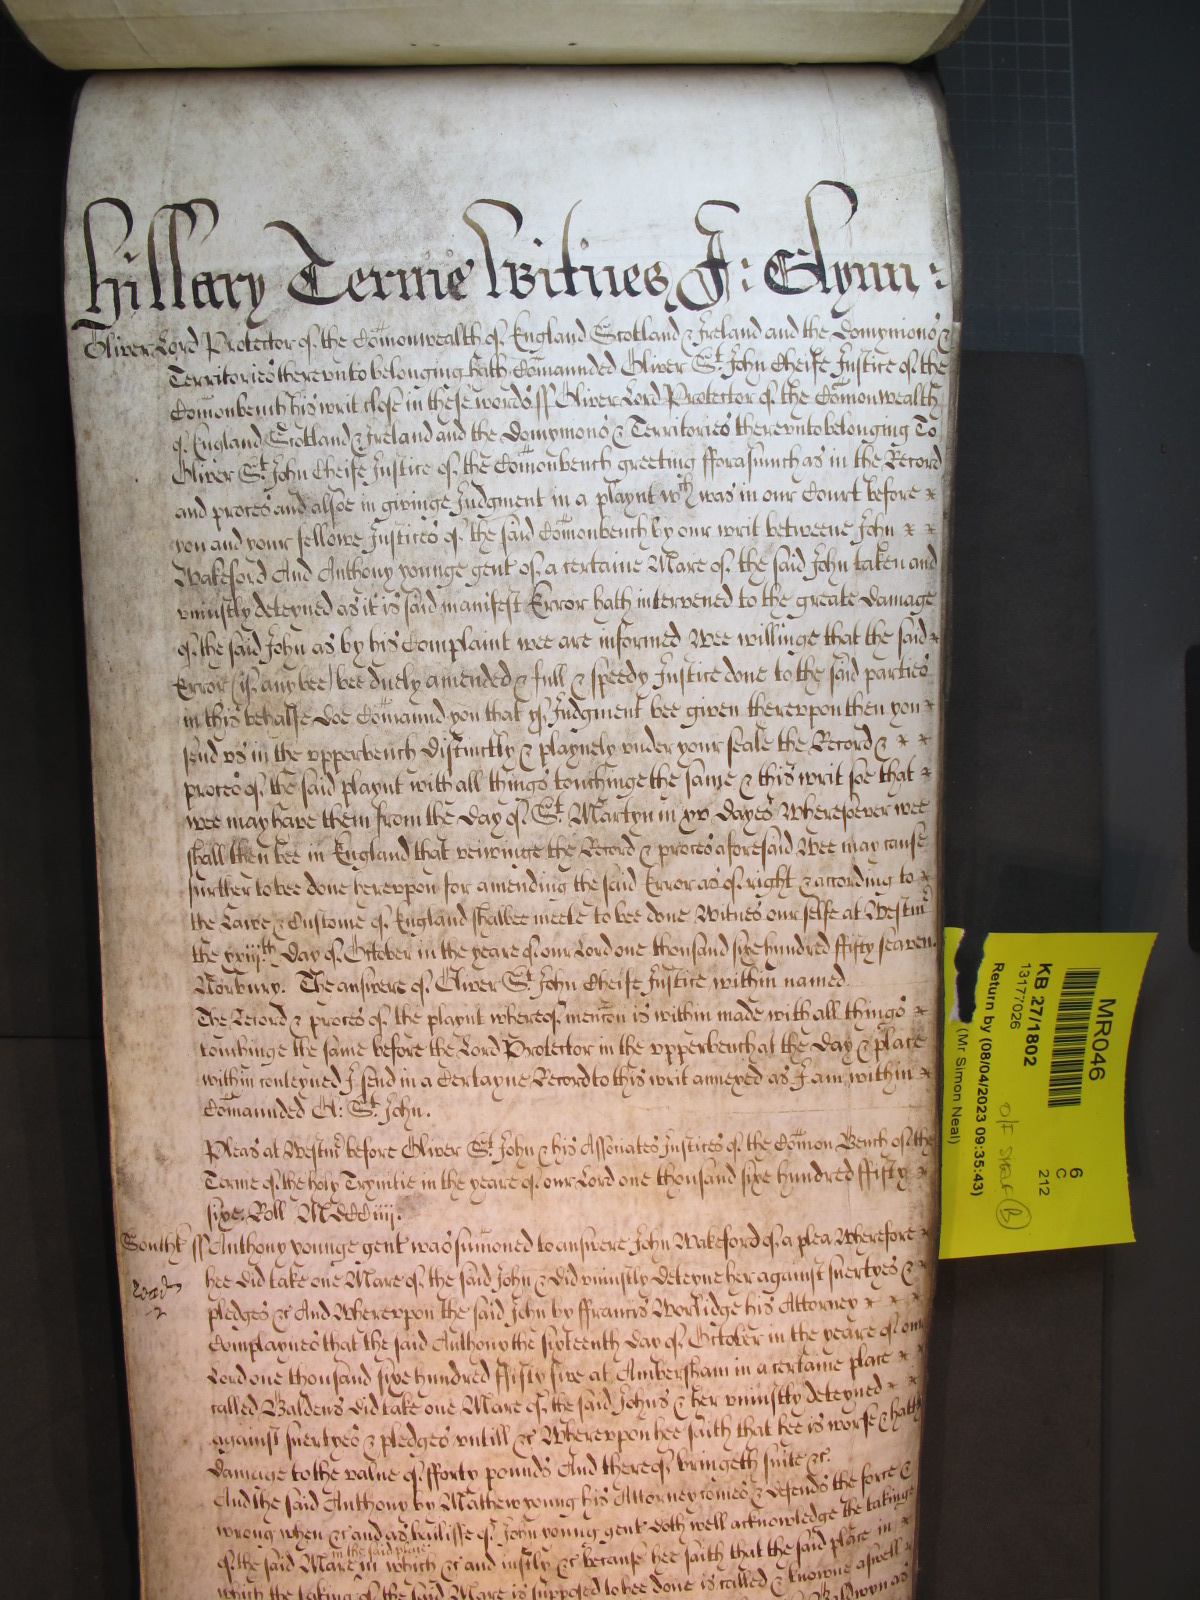 Hillary Terme Witnes J: Glynn:
Oliver Lord Protector of the Comonwealth of England Scotland & Ireland and the Domynions &
Territories therevnto belonging hath Comaunded Oliver St John Cheife Justice of the
Comonbench his writ close in these words ss Oliver Lord Protector of the Comonwealth
of England Scotland & Ireland and the Domynions & Territories therevnto belonging To
Oliver St John Cheife Justice of the Comonbench greeting fforasmuch as in the Record
and proces and alsoe in givinge Judgment in a playnt wch was in our Court before
you and your fellowe Justices of the said Comonbench by our writ betweene John
Wakeford And Anthony younge gent of a certaine Mare of the said John taken and
vniustly deteyned as it is said manifest Error hath intervened to the greate damage
of the said John as by his Complaint wee are informed Wee willinge that the said
Error (if any bee) bee duely amended & full & speedy Justice done to the said parties
in this behalfe Doe Comaund you that yf Judgment bee given therevpon then you
send vs in the vpperbench distinctly & playnely vnder your seale the Record &
proces of the said playnt with all things touchinge the same & this writ soe that
wee may have them from the day of St Martyn in xv dayes Wheresoever wee
shall then bee in England that veiwinge the Record & proces aforesaid Wee may cause
further to bee done herevpon for amending the said Error as of right & according to
the Lawe & Custome of England shalbee meete to bee done Witnes our selfe at Westmr
the xxiijth day of October in the yeare of our Lord one thousand sixe hundred ffifty seaven.
Norbury. The answere of Oliver St John Cheife Justice within named
The Record & proces of the playnt whereof mencon is within made with all things
touchinge the same before the Lord Protector in the vpperbench at the day & place
within conteyned I send in a Certayne Record to this writ annexed as I am within
Comaunded O: St John.
Pleas at Westmr before Oliver St John & his Associates Justices of the Comon Bench of the
Terme of the holy Trynitie in the yeare of our Lord one thousand sixe hundred ffifty
sixe. Roll MDCCiiij.
Southt ss Anthony younge gent was sumoned to answere John Wakeford of a plea Wherefore
hee did take one Mare of the said John & did vniustly deteyne her against suertyes &
pledges &c And Wherevpon the said John by ffrancis Worlidge his Attorney
Complaynes that the said Anthony the sixteenth day of October in the yeare of our
Lord one thousand sixe hundred ffifty five at Ambersham in a certaine place
called Baldens did take one Mare of the said Johns & her vniustly deteyned
against suertyes & pledges vntill &c Wherevpon hee saith that hee is worse & hath
damage to the value of fforty pounds And thereof bringeth suite &c.
And the said Anthony by Mathew young his Attorney comes & defends the force &
wrong when &c and as bailiffe of John young gent doth well acknowledge the takinge
in the said place
of the said Mare in which &c and iustly &c because hee saith that the said place in
which the taking of the said Mare is supposed to bee done is called & knowne aswell
Baldwyn as
MR046
KB 27/1802
13177026
Return by (08/04/2023 09:35:43)
(Mr Simon Neal)
6
C
212
O/F
B